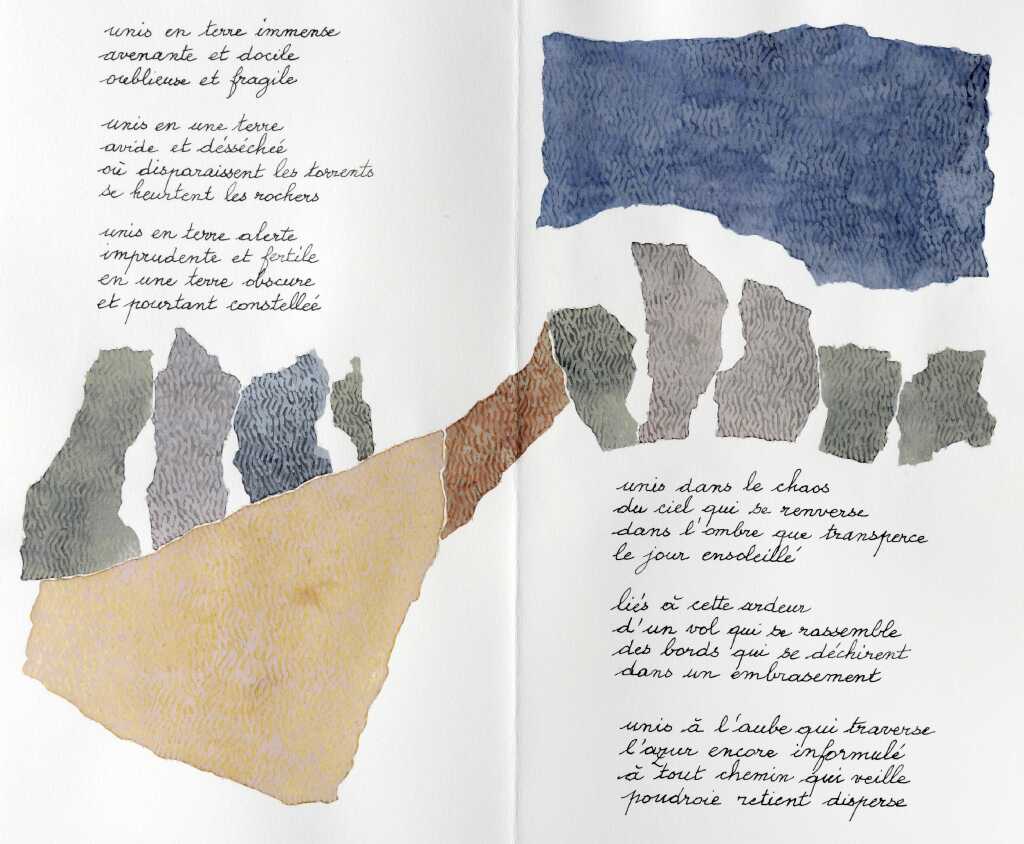 unis en terre immense
avenante et docile
oublieuse et fragile
unis en une terre
avide et désséchée
où disparaissent les torrents
se heurtent les rochers
unis en terre alerte
imprudente et fertile
en une terre obscure
et pourtant constellée
unis dans le chaos
du ciel qui se renverse
dans l'ombre que transperce
le jour ensoleillé
liés à cette ardeur
d'un vol qui se rassemble
des bords qui se déchirent
dans un embrasement
unis à l'aube qui traverse
l'azur encore informulé
à tout chemin qui veille
poudroie retient disperse